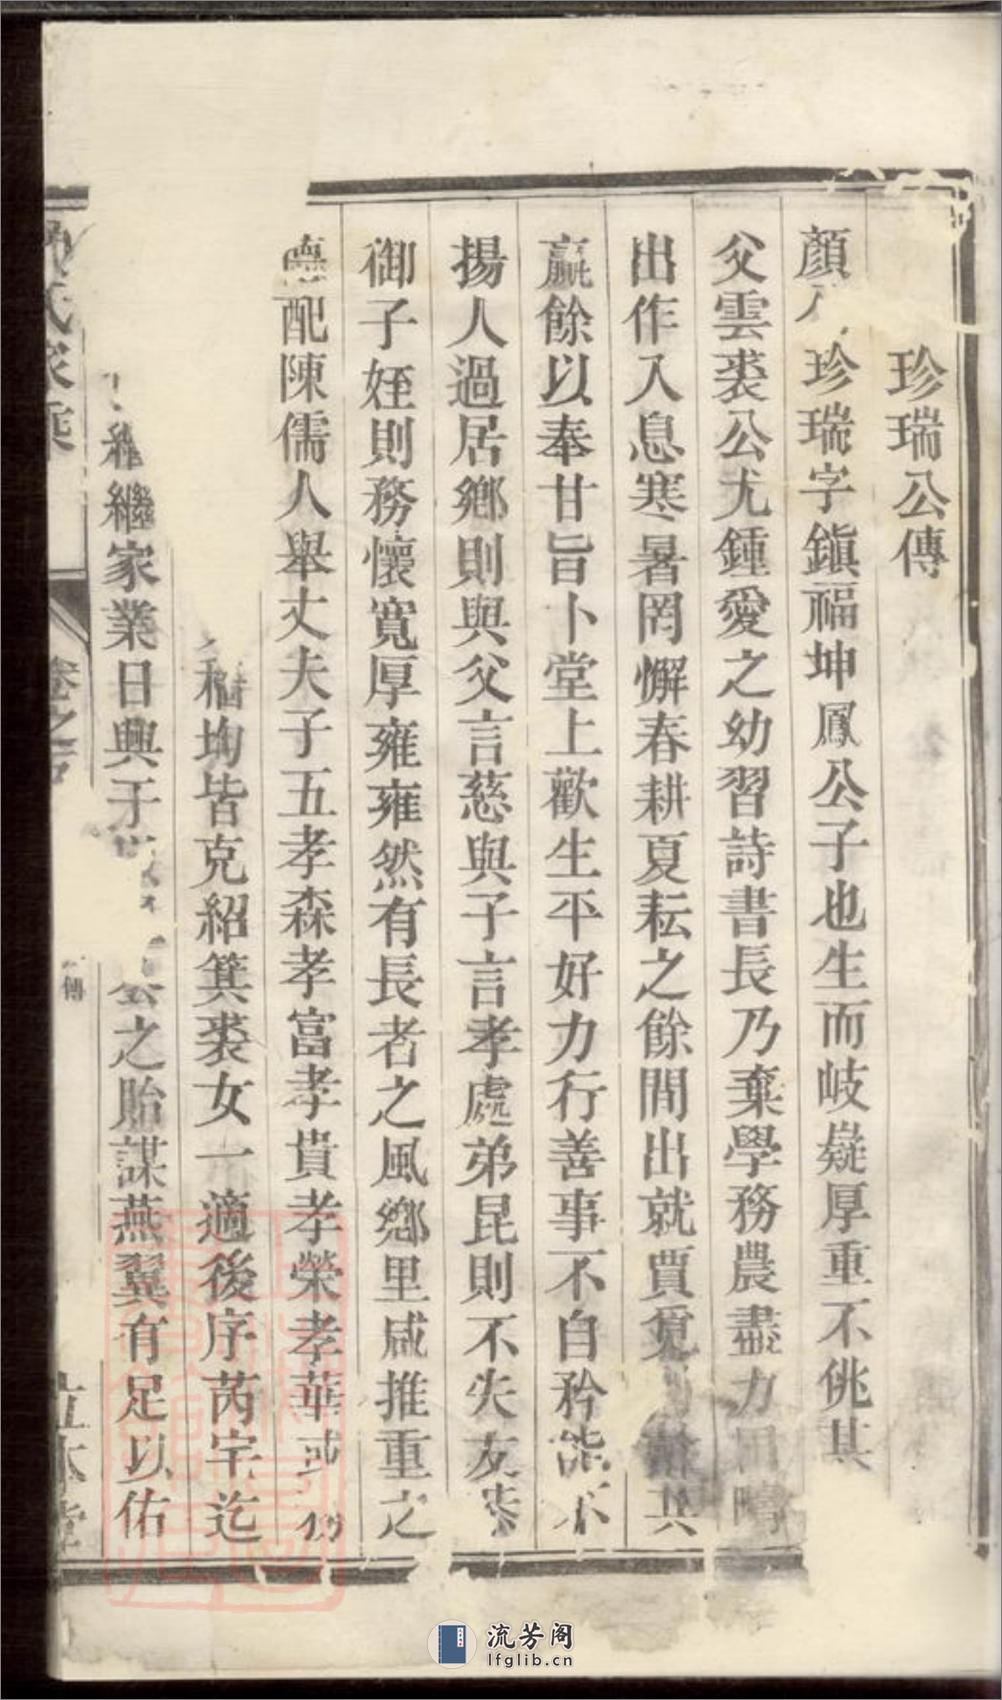 珍瑞公傳
顏公珍瑞字鎮福坤鳳公子也生而岐嶷厚重不佻其
父雲裘公尤鍾愛之幼習詩書長乃棄學務農盡力田疇
出作入息寒暑罔懈春耕夏耘之餘間出就賈覓 餘共
贏餘以奉甘旨卜堂上歡生平好力行善事不自矜能不
揚人過居鄉則與父言慈與子言孝處弟昆則不失友恭
御子姪則務懷寬厚雍雍然有長者之風鄉里咸推重之
德配陳儒人舉丈夫子五孝森孝富孝貴孝榮孝華或
穡均皆克紹箕裘女一適後序芮宇迄
繼家業日興于 之貽謀燕翼有足以佑
氏家乘
卷之
傳
流芳阁
lfglib.cn